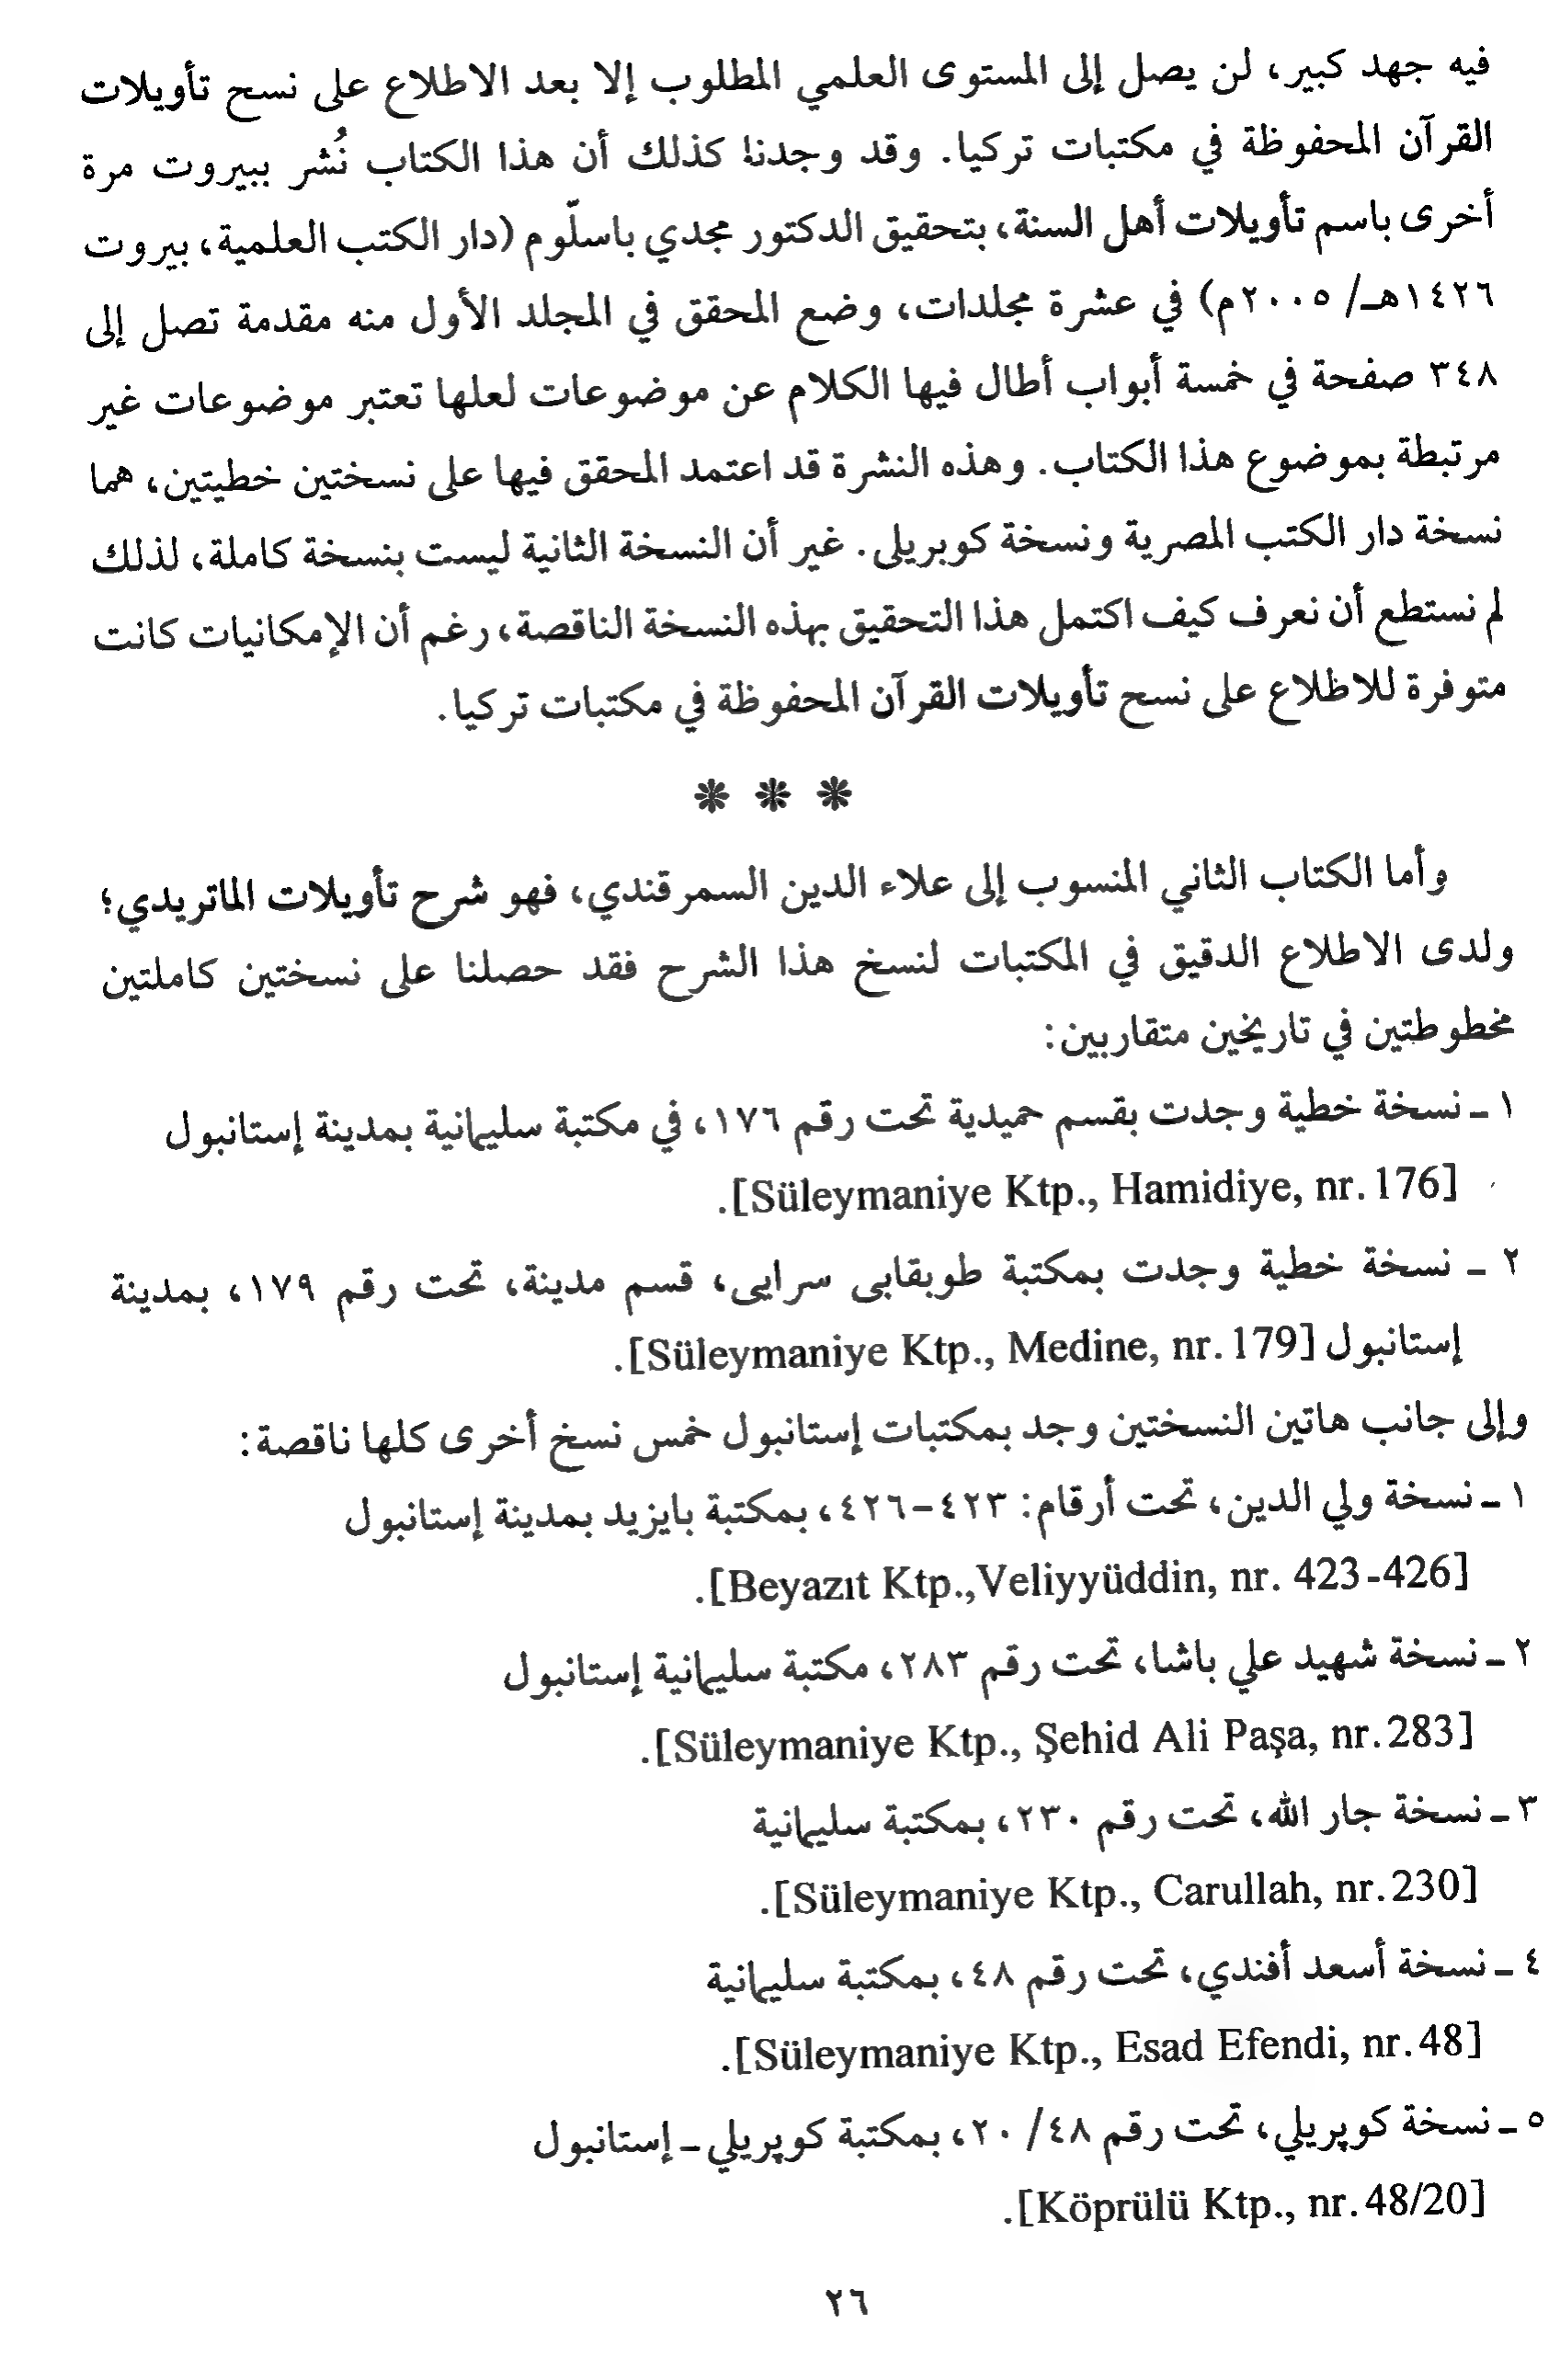 فيه جهد كبير، لن يصل إلى المستوى العلمي المطلوب إلا بعد الاطلاع على نسخ تأويلات
القرآن المحفوظة في مكتبات تركيا. وقد وجدنا كذلك أن هذا الكتاب نُشر ببيروت مرة
أخرى باسم تأويلات أهل السنة، بتحقيق الدكتور مجدي باسلّوم (دار الكتب العلمية، بيروت
١٤٢٦هـ/ ٢٠٠٥م) في عشرة مجلدات، وضع المحقق في المجلد الأول منه مقدمة تصل إلى
٣٤٨ صفحة في خمسة أبواب أطال فيها الكلام عن موضوعات لعلها تعتبر موضوعات غير
مرتبطة بموضوع هذا الكتاب. وهذه النشرة قد اعتمد المحقق فيها على نسختين خطيتين، هما
نسخة دار الكتب المصرية ونسخة كوبريلى. غير أن النسخة الثانية ليست بنسخة كاملة، لذلك
لم نستطع أن نعرف كيف اكتمل هذا التحقيق بهذه النسخة الناقصة، رغم أن الإمكانيات كانت
متوفرة للاظلاع على نسح تأويلات القرآن المحفوظة في مكتبات تركيا.
* * *
وأما الكتاب الثاني المنسوب إلى علاء الدين السمرقندي، فهو شرح تأويلات الماتريدي؛
ولدى الاطلاع الدقيق في المكتبات لنسخ هذا الشرح فقد حصلنا على نسختين كاملتين
مخطوطتين في تاريخين متقاربين:
١ ـ نسخة خطية وجدت بقسم حميدية تحت رقم ١٧٦، في مكتبة سليمانية بمدينة إستانبول
[Süleymaniye Ktp., Hamidiye, nr. 176].
٢ ـ نسخة خطية وجدت بمكتبة طوبقابى سرايى، قسم مدينة، تحت رقم ١٧٩، بمدينة
إستانبول [Süleymaniye Ktp., Medine, nr. 179].
وإلى جانب هاتين النسختين وجد بمكتبات إستانبول خمس نسخ أخرى كلها ناقصة:
١ ـ نسخة ولي الدين، تحت أرقام: ٤٢٣-٤٢٦، بمكتبة بايزيد بمدينة إستانبول
[Beyazıt Ktp.,Veliyyüddin, nr. 423-426].
٢ ـ نسخة شهيد علي باشا، تحت رقم ٢٨٣، مكتبة سليمانية إستانبول
[Süleymaniye Ktp., Şehid Ali Paşa, nr. 283].
٣ ـ نسخة جار الله، تحت رقم ٢٣٠، بمكتبة سليمانية
[Süleymaniye Ktp., Carullah, nr. 230].
٤ ـ نسخة أسعد أفندي، تحت رقم ٤٨، بمكتبة سليمانية
[Süleymaniye Ktp., Esad Efendi, nr. 48].
٥ ـ نسخة كوپريلي، تحت رقم ٤٨/ ٢٠، بمكتبة كوپريلي ـ إستانبول
[Köprülü Ktp., nr. 48/20].
٢٦